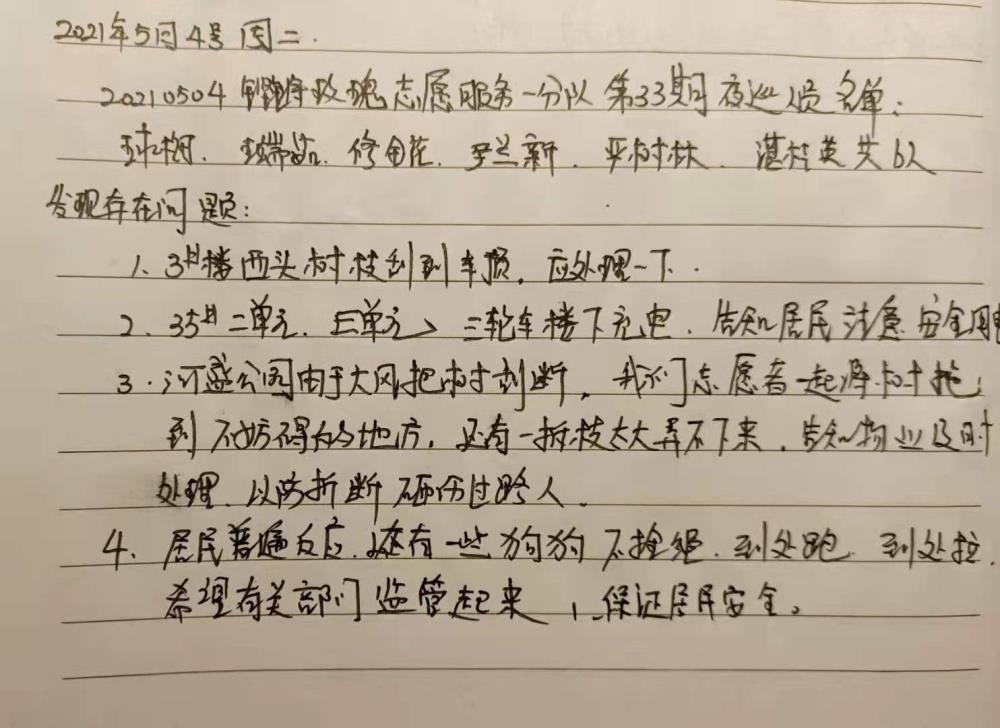 2021年5月4号周二.
20210504 玫瑰志愿服务一分队第33期夜巡人员名单:
兰新. 平树林. 湛桂英共6人
发现存在问题:
1. 3#楼西头树枝刮到车顶, 应处理一下.
2. 35#二单元. 三单元、三轮车楼下充电. 告知居民注意安全用电
3. 河盛公园由于大风把树刮断, 我们志愿者一起将树拖
到不妨碍的地方, 还有一折枝太大弄不下来. 告知物业及时
处理. 以防折断砸伤过路人.
4. 居民普遍反应, 还有一些狗狗不拴绳. 到处跑. 到处拉.
希望有关部门监管起来, 保证居民安全。